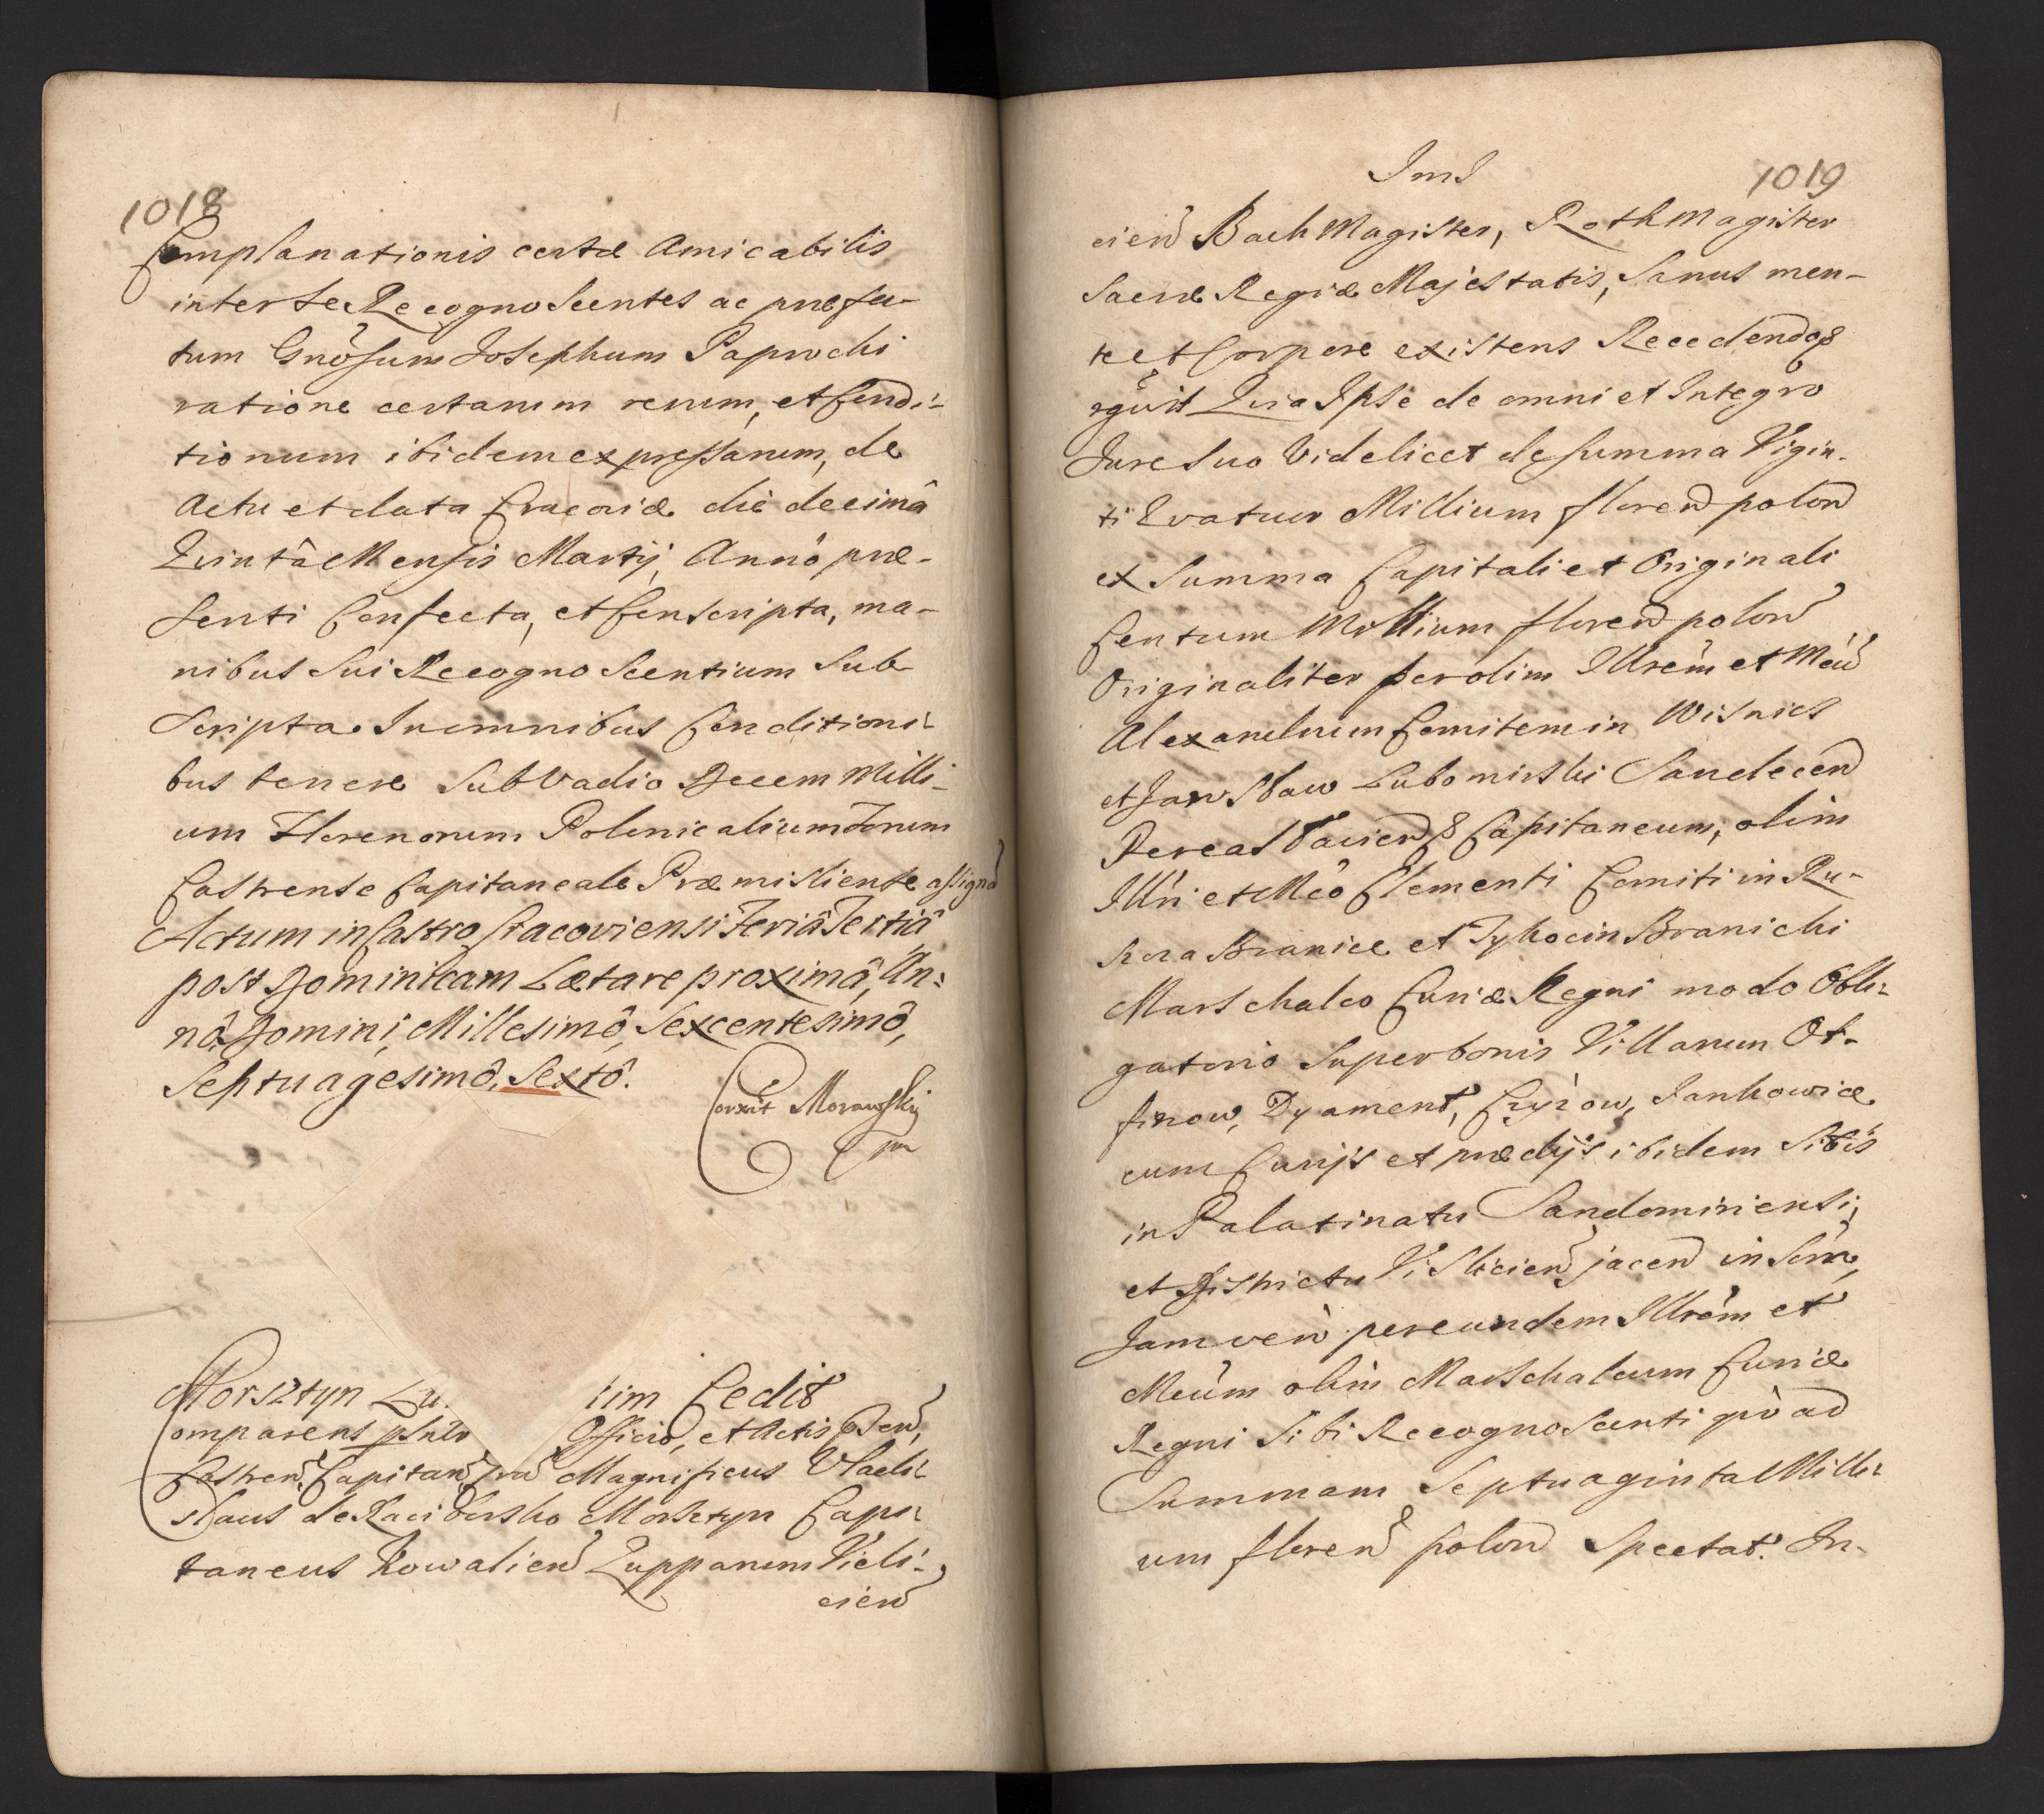 1018
Complanationis certæ Amicabilis
inter se Recognoscentes ac præfa-
tum Gnosum Josephum Paprocki
ratione certarum rerum, et Condi-
tionum ibidem expressarum, de
Actu et data Cracoviæ die decimâ
Quintâ Mensis Martij, Annô præ-
senti Confecta, et Conscripta, ma-
nibus sui Recognoscentium Sub
Scripta. In omnibus Conditioni-
bus tenere Sub Vadio Decem Milli-
um Florenorum Polonicalium Forum
Castrense Capitaneale Præmisliense assignd
Actum in Castro Cracoviensi Feriâ Tertiâ
post Dominicam Lætare proximâ, An-
nô Domini, Millesimô, Sexcentesimô,
Septuagesimô, Sextô.
Corxit Morawskij
mp
Morsztyn Lu im Cedit
Comparens psnlr Officio, et Actis Psen,
Castren, Capitan, Cra Magnificus Vladi-
slaus de Raciborsko Morsztyn Capi-
taneus Kowalien Zupparum Vieli-
cien
Jms
1019
cien BachMagister, RothMagister
Sacræ Regiæ Majestatis, Sanus men-
te et Corpore existens Recedendo&
rgovit Quia Ipse de omni et Integro
Jure Suo Videlicet de summa Vigin-
ti Quatuor Millium floren polon
ex Summa Capitali et Originali
Centum Millium floren polon
Originaliter per olim Illrem et Mcu
Alexandrum Comitem in Wisnicz
et Jarosław Lubomirski Sandecen
Pereasłavien & Capitaneum, olim
Illri et Mco Clementi Comiti in Ru-
szcza Branice et Tykocin Branicki
Marschalco Curiæ Regni modo Obli-
gatorio super bonis Villarum Ot-
finow, Dyament, Czyżow, Jankowice
cum Curijs et prædijs ibidem Sitis
in Palatinatu Sandomiriensi,
et Districtu Vislicien jacen in Scrm,
Jam vero per eundem Illrem et
Mcum olim Marschalcum Curiæ
Regni Sibi Recognoscenti quò ad
Summam Septuaginta Milli-
um floren polon Spectat. In-